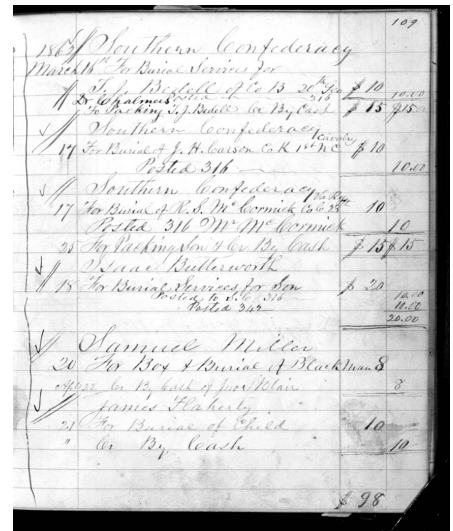 109
1862 Southern Confederacy
March 16th For Burial Services for
T. J. Bedell of Co B 20th Ga $ 10 10.00
Dr Chalmers Posted 316
To Packing T. J. Bedell Cr By Cash $ 15 $15.00
Southern Confederacy
17 For Burial of J. H. Carson Co K 1st NC Cavalry $ 10
Posted 316 10.00
Southern Confederacy
17 For Burial of R. S. McCormick Co G 10
Posted 316 Mr McCormick 10
25 For Packing Son & Cr By Cash $ 15 $15
Isaac Butterworth
18 For Burial Services for Son $ 20
Posted to S. C. 316 10.00
Posted 342 10.00
20.00
Samuel Miller
20 For Box & Burial of Black Man 8
Cr By Cash of Blair 8
James Flaherty
21 For Burial of Child 10
" Cr By Cash 10
$ 98